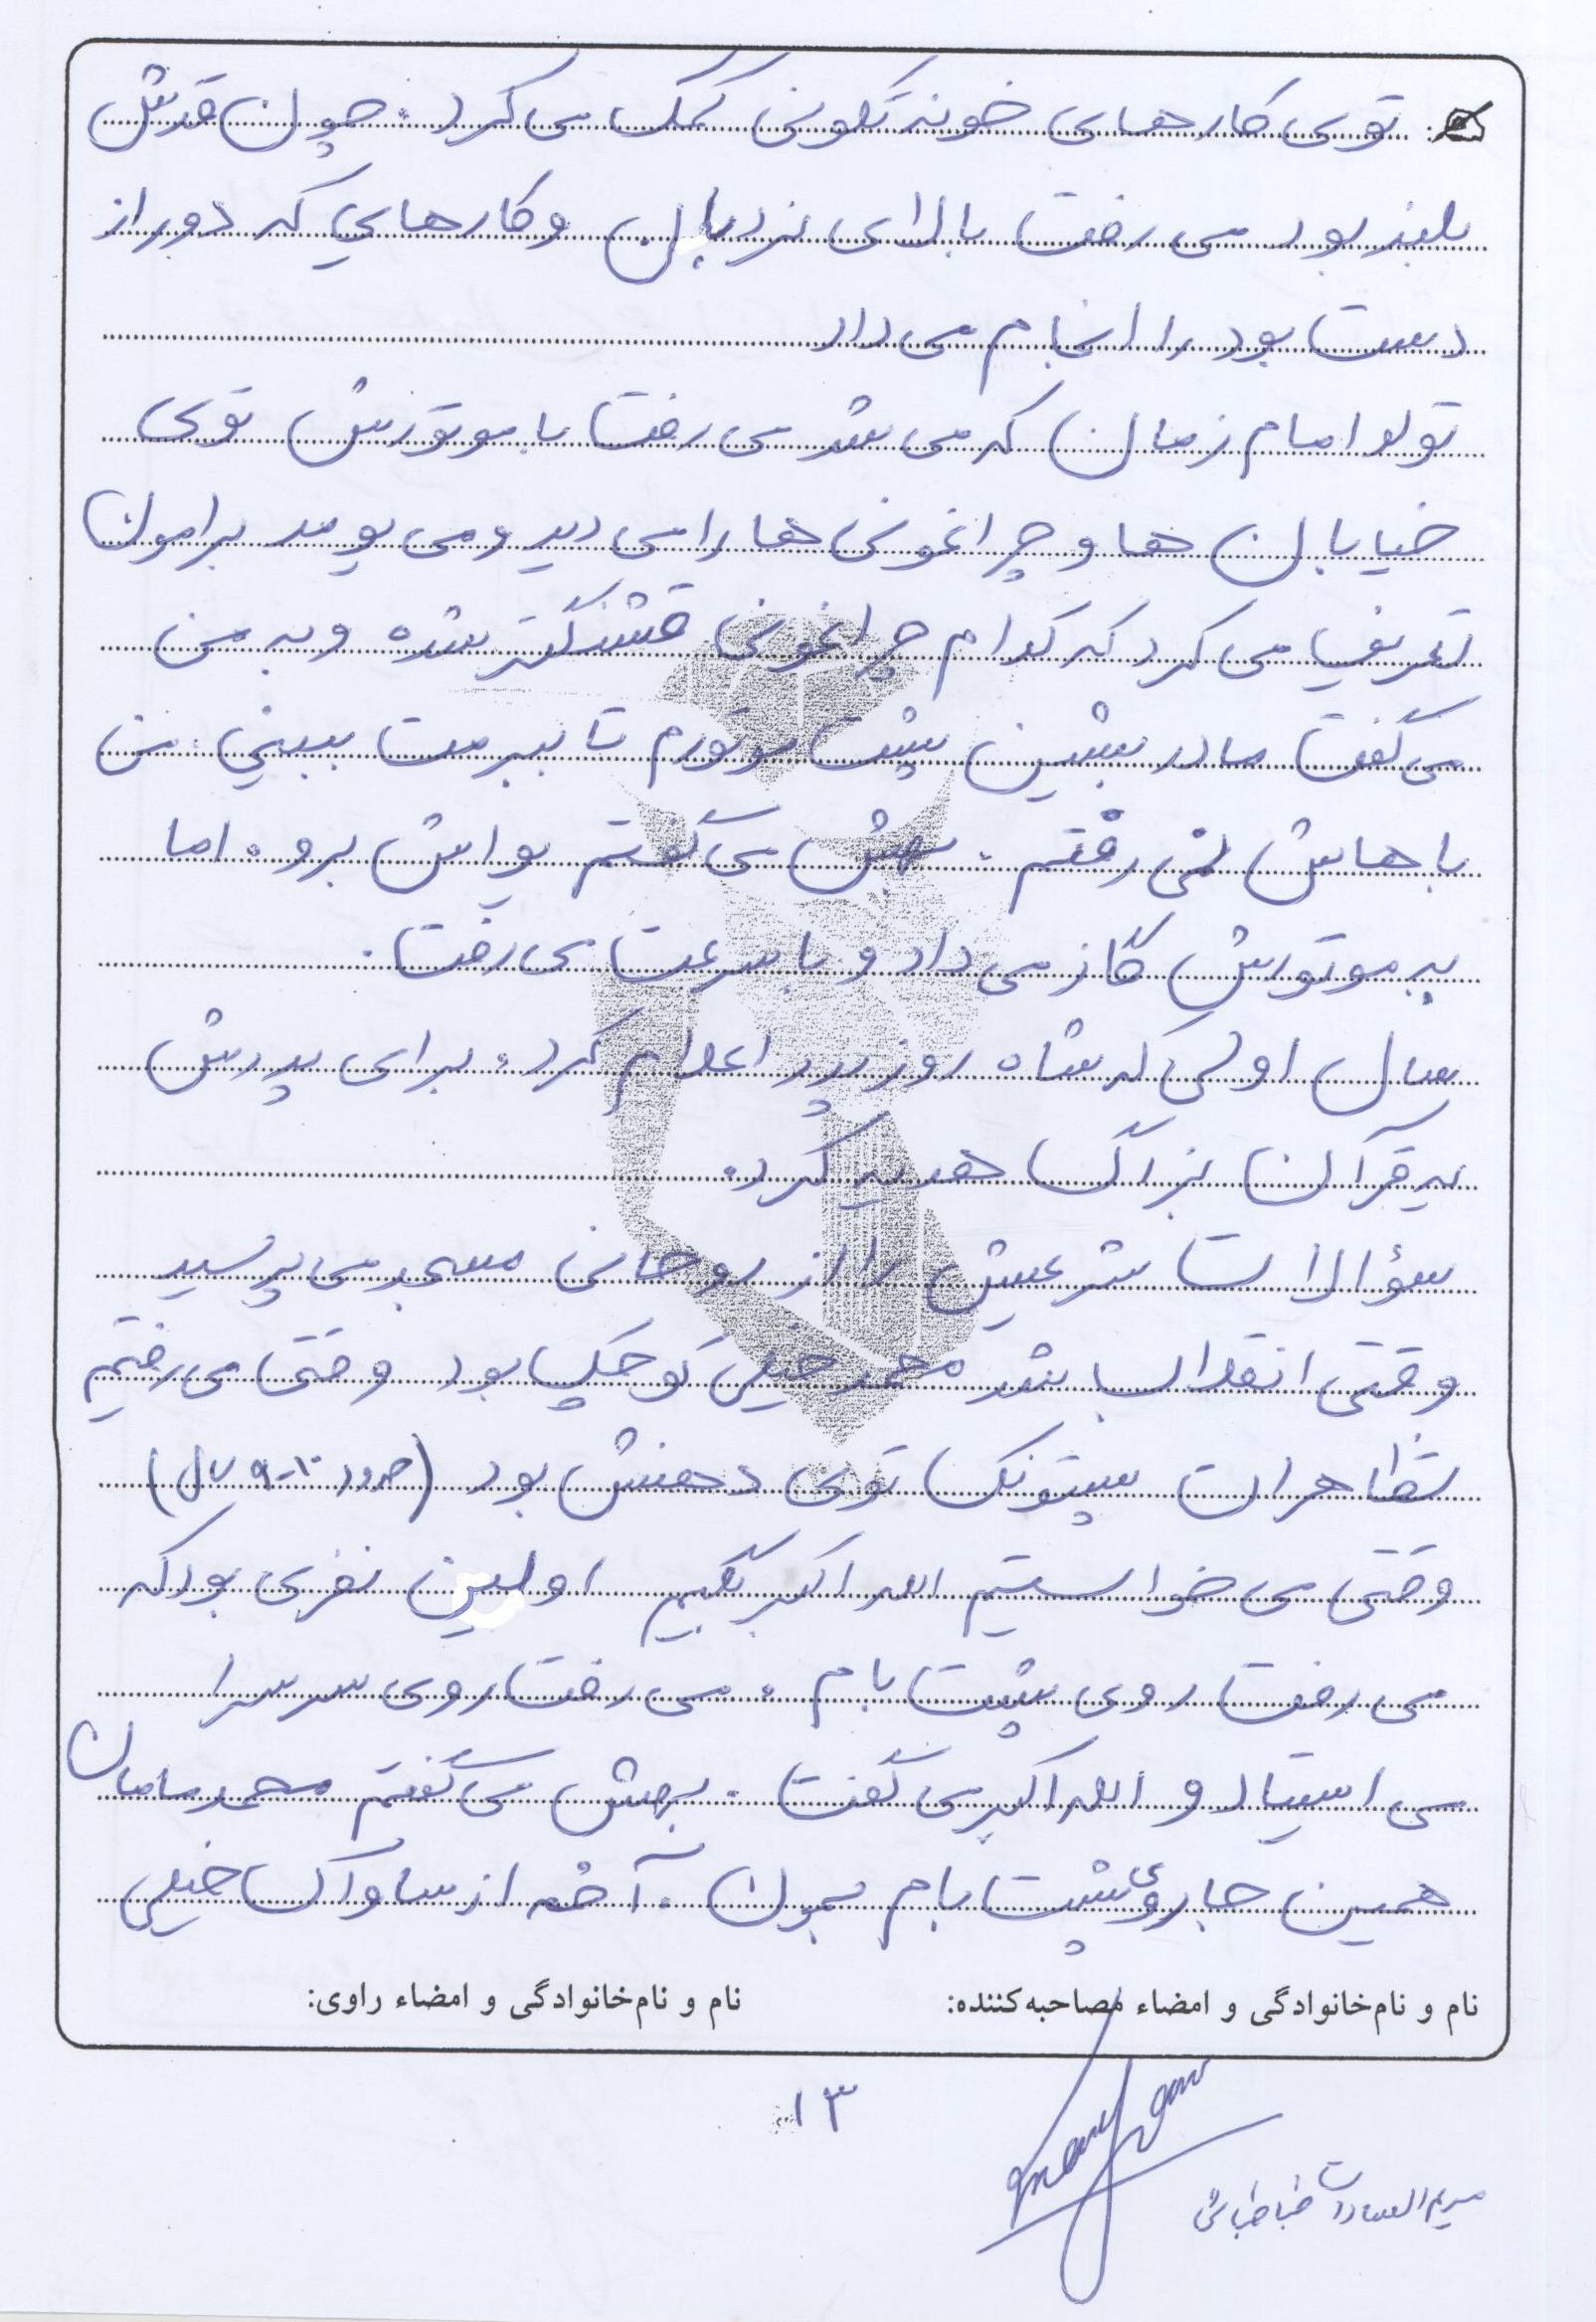 توی کارهای خونه تکونی کمک می کرد. چون قدش
بلند بود می رفت بالای نردبان و کارهایی که دور از
دست بود را انجام می داد
تولد امام زمان که می شد می رفت با موتورش توی
خیابان ها و چراغونی ها را می دید و می یومد برامون
تعریف می کرد که کدام چراغونی قشنگتر شده و به من
می گفت مادر بشین پشت موتورم تا ببرمت ببینی. من
باهاش نمی رفتم. بهش می گفتم یواش برو. اما
به موتورش گاز می داد و با سرعت می رفت.
سال اولی که شاه روز پدر اعلام کرد. برای پدرش
یه قرآن بزرگ هدیه کرد.
سؤالات شرعیش را از روحانی مسجد می پرسید
وقتی انقلاب شد محمد خیلی کوچک بود وقتی می رفتیم
تظاهرات پستونک توی دهنش بود (حدود ۱۰-۹ سال)
وقتی می خواستیم الله اکبر بگیم اولین نفری بود که
می رفت روی پشت بام. می رفت روی سرسرا
می ایستاد و الله اکبر می گفت. بهش می گفتم محمد مامان
همین جا روی پشت بام بمون. آخه از ساواک خیلی
نام و نام‌خانوادگی و امضاء مصاحبه‌کننده: نام و نام‌خانوادگی و امضاء راوی:
۱۳
مریم السادات طباطبائی